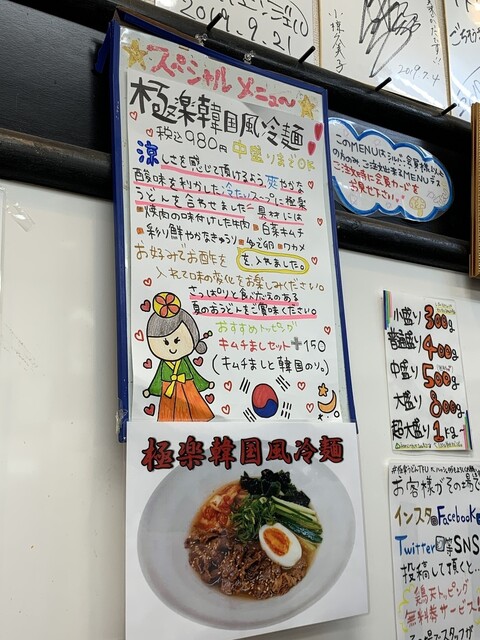 2019.9.21
2019.7.4
スペシャルメニュー
極楽韓国風冷麺
税込980円 中盛りまでOK
涼しさを感じて頂けるよう、爽やかな
酸味を利かした冷たいスープに極楽
うどんを合わせました 具材には
焼肉の味付けした牛肉 白菜キムチ
彩り鮮やかなきゅうり ゆで卵 ワカメ
を入れました。
お好みでお酢を
入れて味の変化をお楽しみください。
さっぱりと食べたえのある
夏のおうどんをご賞味ください。
おすすめトッピング
キムチましセット+150
(キムチましと韓国のり。)
極楽韓国風冷麺
このMENUはシルバー会員様以上
のみ ご注文出来るMENUデス
ご注文時に会員カードを
ご見せ下さい。
小盛り 300g
普通盛り 400g
中盛り 500g
大盛り 800g
超大盛り 1kg
お客様がその場で
インスタ Facebook
Twitter 等 SNS
投稿して頂くと…
鶏天トッピング
無料券サービス!!